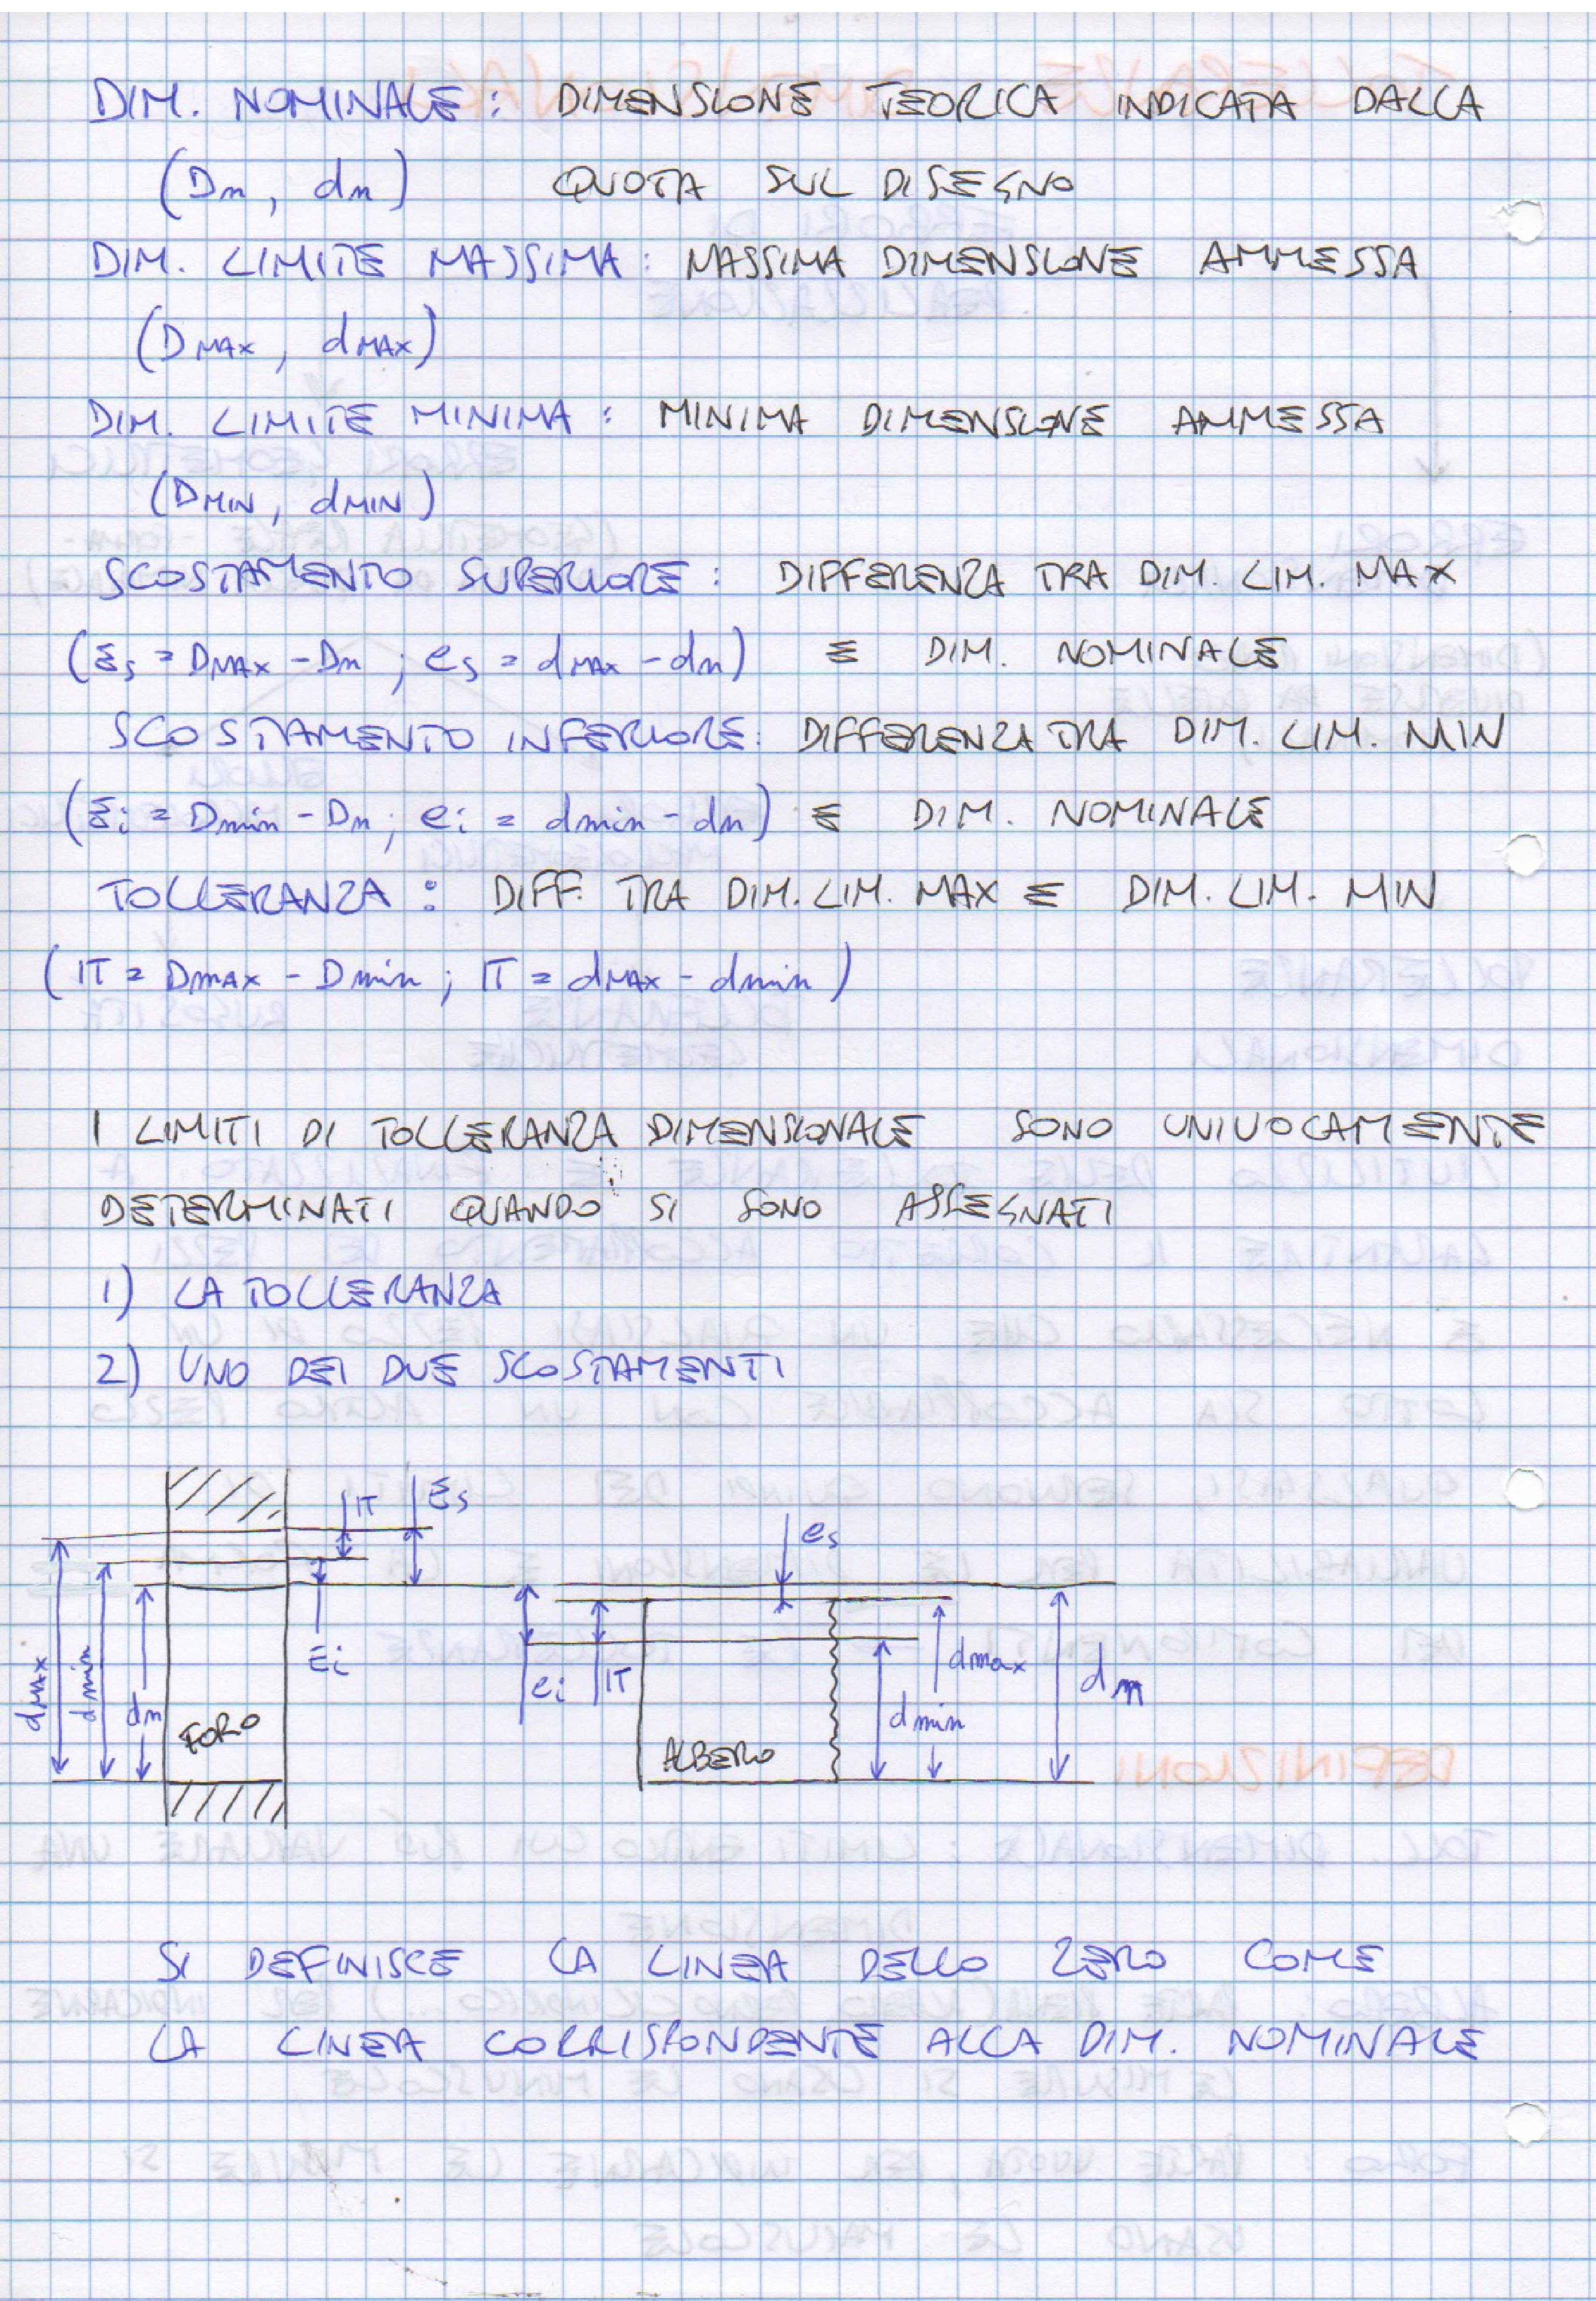 DIM. NOMINALE: DIMENSIONE TEORICA INDICATA DALLA
(Dn, dn) QUOTA SUL DISEGNO
DIM. LIMITE MASSIMA: MASSIMA DIMENSIONE AMMESSA
(DMAX, dMAX)
DIM. LIMITE MINIMA: MINIMA DIMENSIONE AMMESSA
(DMIN, dMIN)
SCOSTAMENTO SUPERIORE: DIFFERENZA TRA DIM. LIM. MAX
(Es = DMAX - Dn; es = dMAX - dn) E DIM. NOMINALE
SCOSTAMENTO INFERIORE: DIFFERENZA TRA DIM. LIM. MIN
(Ei = Dmin - Dn; ei = dmin - dn) E DIM. NOMINALE
TOLLERANZA: DIFF. TRA DIM. LIM. MAX E DIM. LIM. MIN
(IT = Dmax - Dmin; IT = dMAX - dmin)
I LIMITI DI TOLLERANZA DIMENSIONALE SONO UNIVOCAMENTE
DETERMINATI QUANDO SI SONO ASSEGNATI
1) LA TOLLERANZA
2) UNO DEI DUE SCOSTAMENTI
IT Es
es
Ei
dMAX dmin dn FORO
ei IT
dmax
dn
dmin
ALBERO
SI DEFINISCE LA LINEA DELLO ZERO COME
LA LINEA CORRISPONDENTE ALLA DIM. NOMINALE